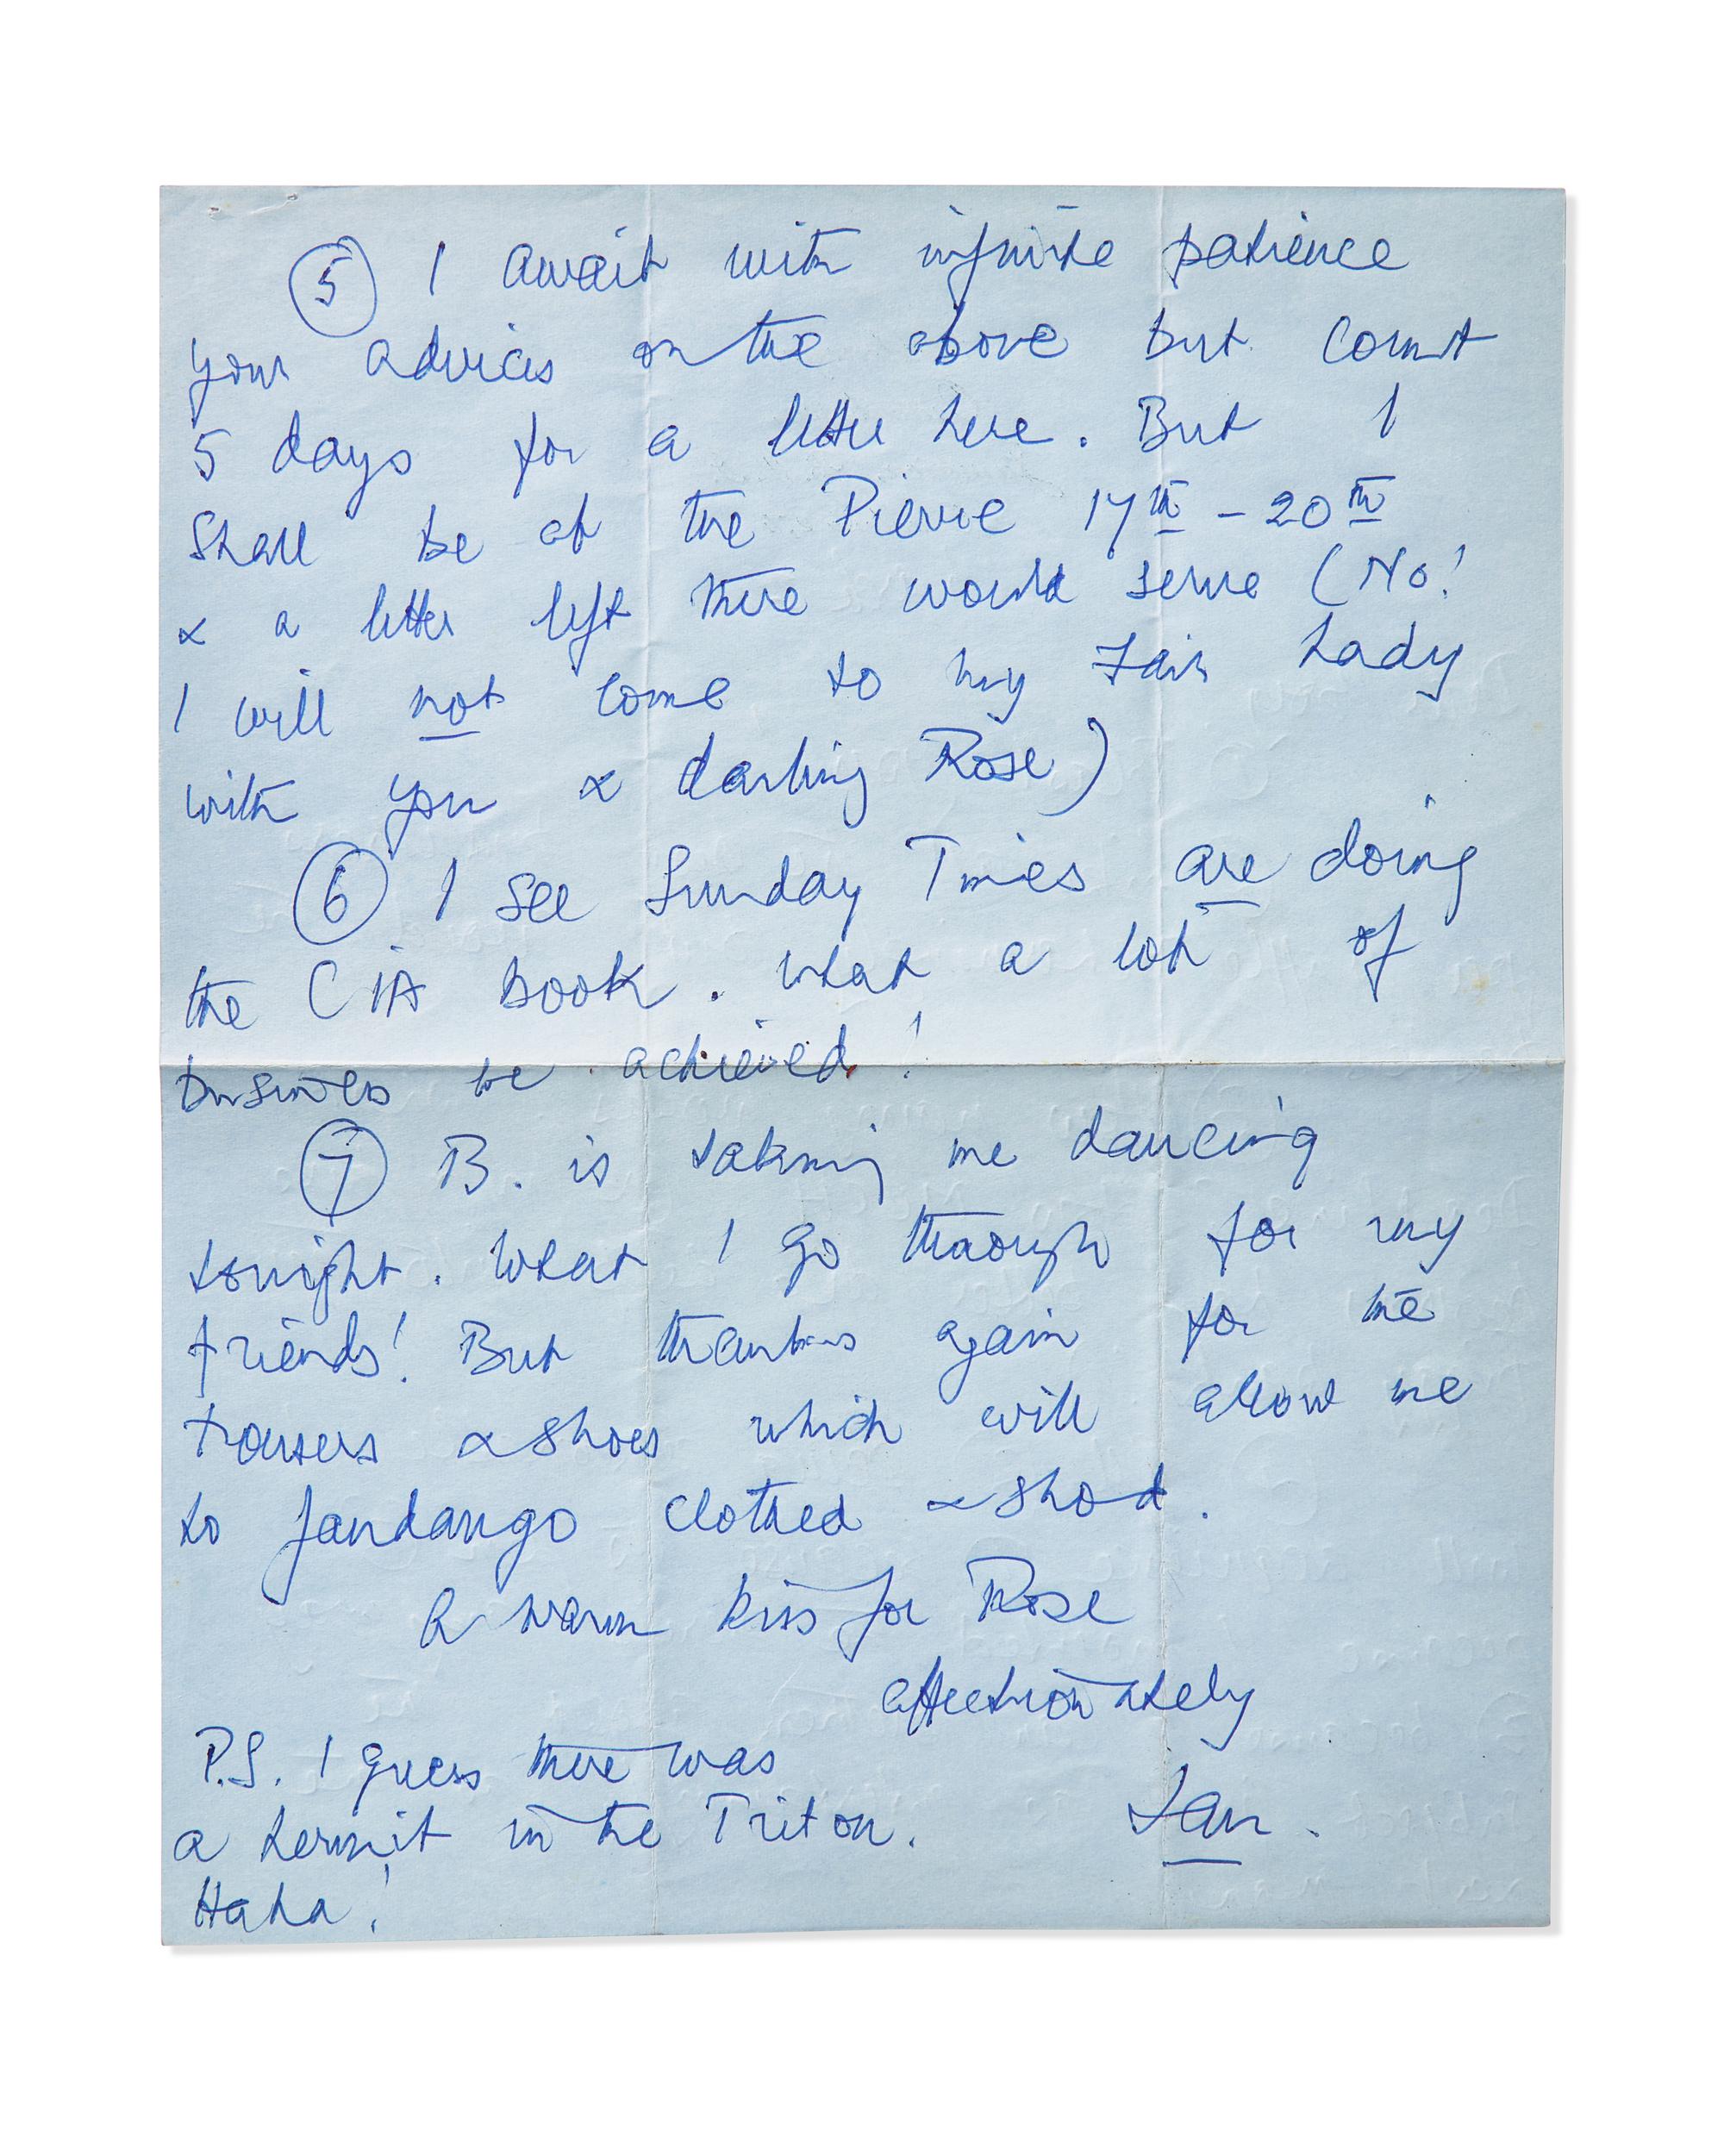 ⑤ I await with infinite patience
your advices on the above but count
5 days for a letter here. But I
shall be at the Pierre 17th - 20th
& a letter left there would serve (No!
I will not come to My Fair Lady
with you & darling Rose)
⑥ I see Sunday Times are doing
the CIA book. What a lot of
business we achieved!
⑦ B. is taking me dancing
tonight. What I go through for my
friends! But thanks again for the
trousers & shoes which will allow me
to fandango clothed & shod.
A warm kiss for Rose
affectionately
P.S. I guess there was
Ian.
a hermit in the Triton.
Haha!